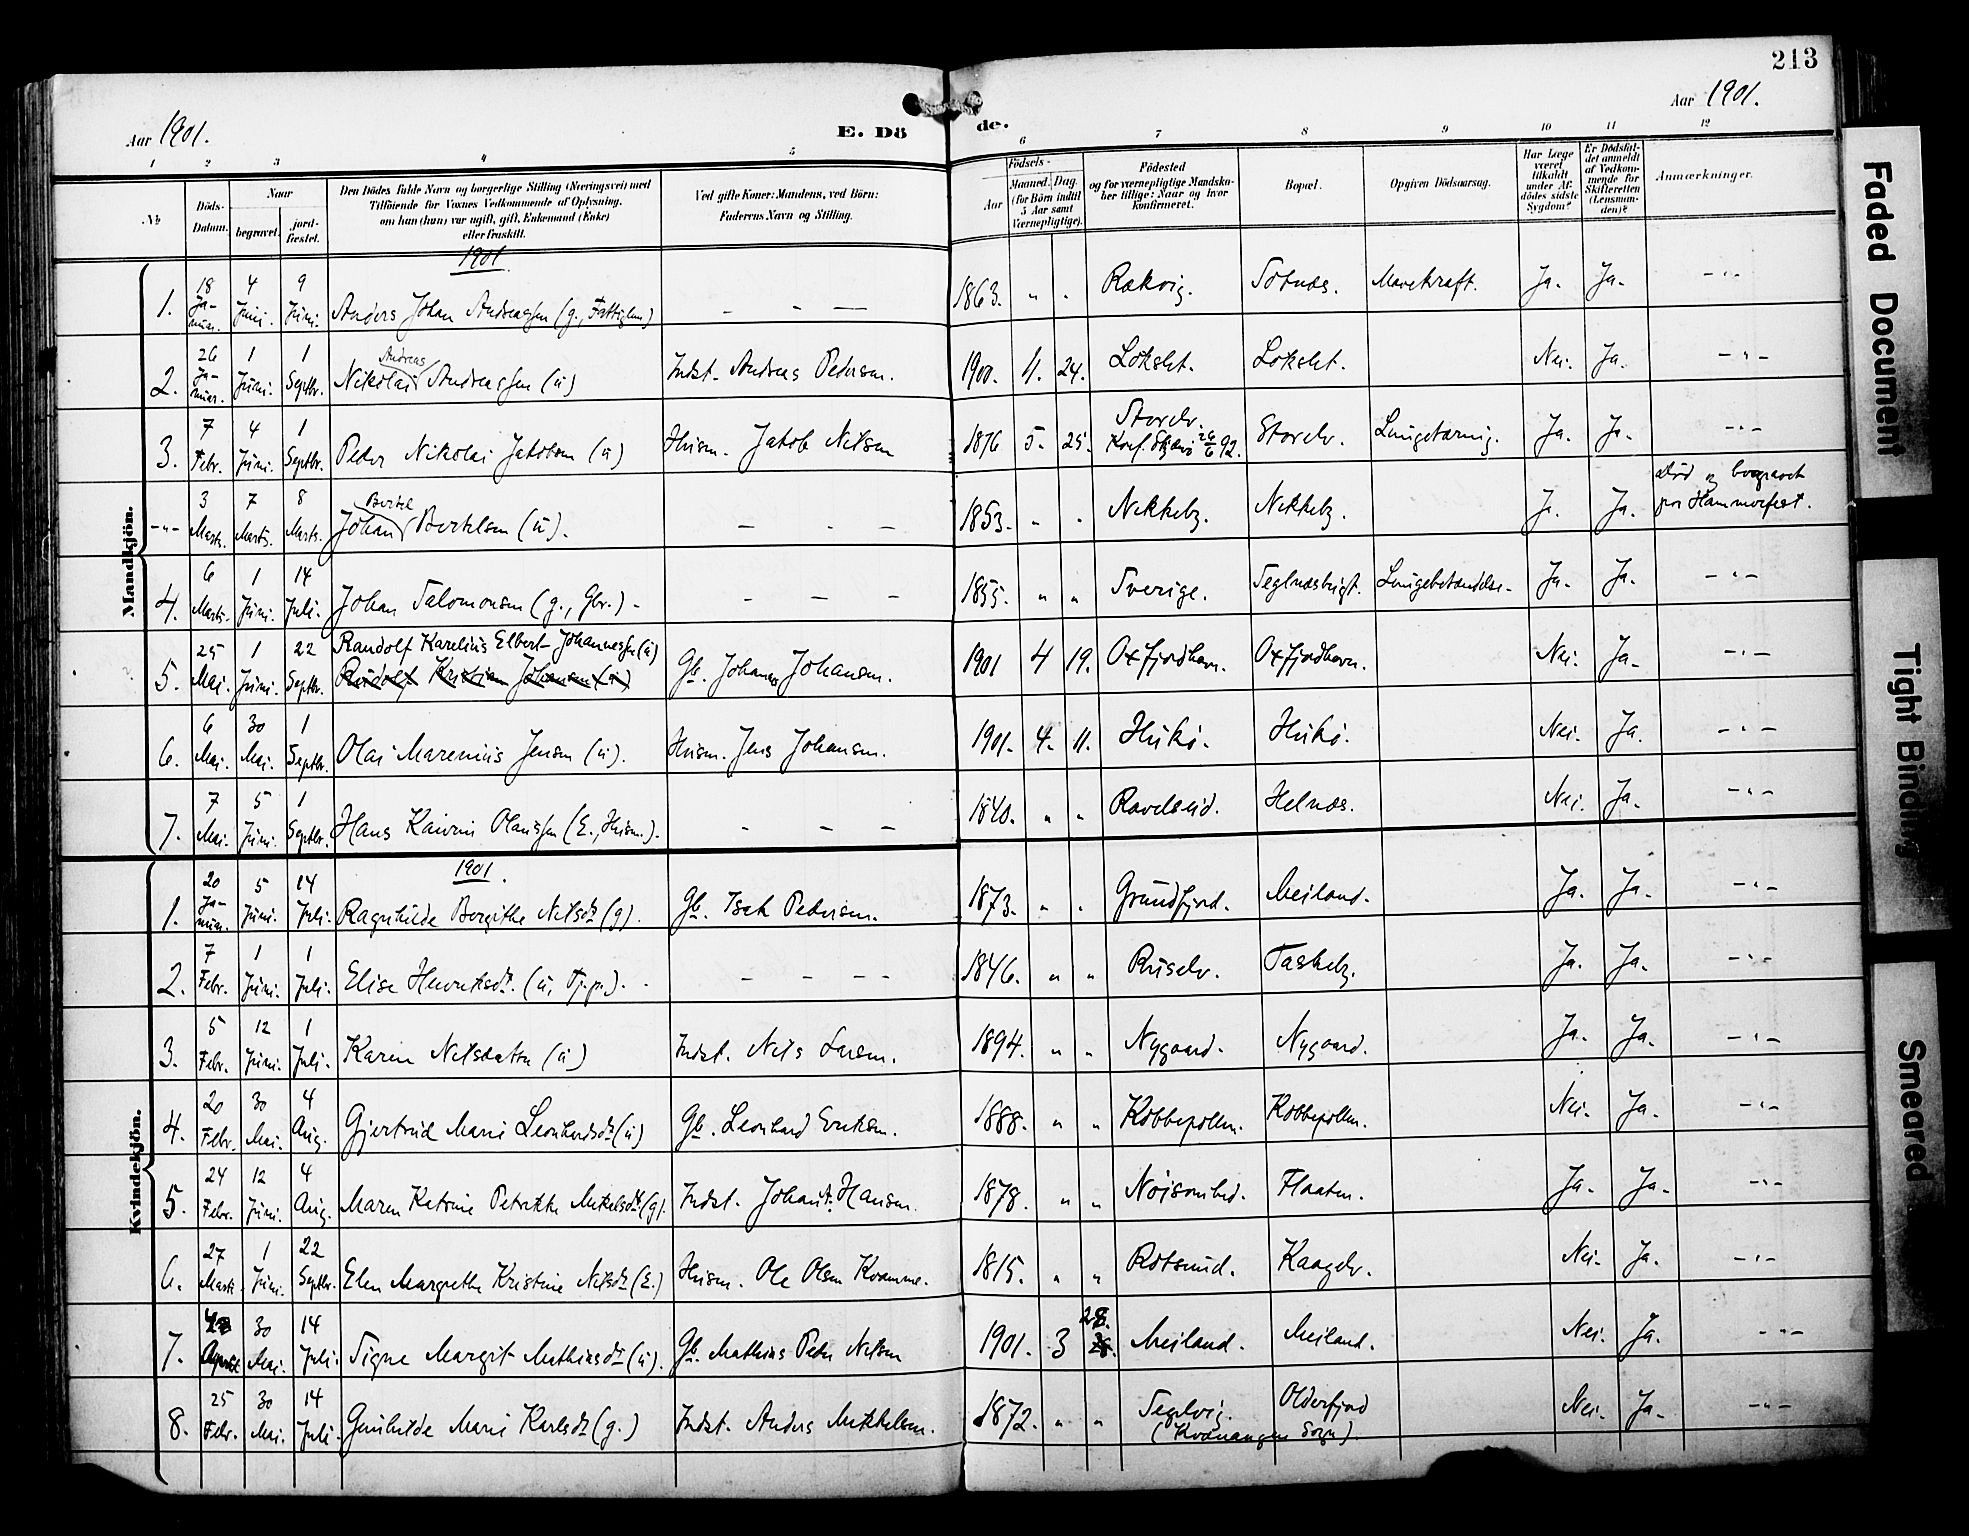 213
Aar 1901.
E. Dö de.
Aar 1901.
1 2 3 4 5 6 7 8 9 10 11 12
No
Döds-Datum.
Naar
begravet.
jordfæstet.
Den Dödes fulde Navn og borgerlige Stilling (Næringsvei) med
Tilföiende for Voxnes Vedkommende af Oplysning,
om han (hun) var ugift, gift, Enkemand (Enke)
eller fraskilt.
Ved gifte Koner: Mandens, ved Börn:
Faderens Navn og Stilling.
Födsels-
Aar
Maaned. Dag.
(for Börn indtil 5 Aar samt Værnepligtige).
Födested
og for værnepligtige Mandskaber tillige: Naar og hvor konfirmeret.
Bopæl.
Opgiven Dödsaarsag.
Har Læge været tilkaldt under Afdödes sidste Sygdom?
Er Dödsfaldet anmeldt af Vedkommende for Skifteretten (Lensmanden)?
Anmærkninger.
Mandkjön.
1901
1. 18 Januar. 4 Juni. 9 Juni. Anders Johan Andreassen (g., Fattiglem) - - — 1863. " " Rakvig. Sotnæs. Marekraft. Ja. Ja. -"-
2. 26 Januar. 1 Juni. 1 Septbr. Nikolai Andreas Andreassen (u) Indst. Andreas Pedersen. 1900. 11. 24. Løkslet. Løkslet. Nei. Ja. -"-
3. 7 Febr. 4 Juni. 1 Septbr. Peder Nikolai Jakobsen (u) Husm. Jakob Nilsen 1876 5. 25. Storelv. Konf. Skjærvø 26/6 92. Storelv. Lungetæring. Ja. Ja. -"-
-"- 3 Marts. 7 Marts. 8 Marts. Johan Bertel Bertelsen (u). - - - 1853. " " Nikkeby. Nikkeby. Ja. Ja. Død og begravet paa Hammerfest.
4. 6 Marts. 1 Juni. 14 Juli. Johan Salomonsen (g., Gbr.) - - - - 1855. " " Sverige. Lungebetændelse. Ja. Ja. -"-
5. 25 Mai. 1 Juni. 22 Septbr. Randolf Karelius Elbert Johannessen (u)
Rudolf Kristian Johansen (u) Gb. Johannes Johansen. 1901 4 19. Oxfjordhavn. Oxfjordhavn. Nei. Ja. -"-
6. 6 Mai. 30 Mai. 1 Septbr. Olai Marenius Jensen (u). Husm. Jens Johansen. 1901. 4. 11. Hukø. Hukø. Nei. Ja. -"-
7. 7 Mai. 5 Juni. 1 Septbr. Hans Olaussen (E., Husm.). - - - 1840. " " Ravelseid. Helnæs. Nei. Ja. -"-
Kvindekjön.
1901.
1. 20 Januar. 5 Juni. 14 Juli. Ragnhilde Bergithe Nilsdtr (g). Gb. Isak Pedersen. 1873. " " Grundfjord. Meiland. Ja. Ja. -"-
2. 7 Febr. 1 Juni. 1 Juli. Elise Henriksdtr. (u, Tj.p.). - - - - 1846. " " Ruselv. Taskeby. Ja. Ja. -"-
3. 5 Febr. 12 Juni. 1 Juli. Karen Nilsdatter (u) Indst. Nils Larsen. 1894. " " Nygaard. Nygaard. Ja. Ja. -"-
4. 20 Febr. 30 Mai. 4 Aug. Gjertrud Marie Leonhardsdtr (u) Gb. Leonhard Eriksen. 1888. " " Kobbepollen. Kobbepollen. Nei. Ja. -"-
5. 24 Febr. 12 Juni. 4 Aug. Maren Katrine Petrikke Mikelsdtr (g). Indst. Johan A. Hansen. 1878. " " Flaaten. Ja. Ja. -"-
6. 27 Marts. 1 Juni. 22 Septbr. Elen Margrethe Kristine Nilsdtr (E.) Husm. Ole Olsen Kvamme. 1815. " " Rotsund. Kaagelv. Nei. Ja. -"-
7. April 30 Mai. 14 Juli. Signe Margit Mathiasdtr (u). Gb. Mathias Peder Nilsen 1901. 3 Meiland. Meiland. Nei. Ja. -"-
8. 25 Febr. 30 Mai. 14 Juli. Gunhilde Marie Karlsdtr (g.) Indst. Anders Mikkelsen. 1872. " " Segelvig. (Kvænangen Sogn). Olderfjord Nei. Ja. -"-
Faded Document
Tight Binding
Smeared